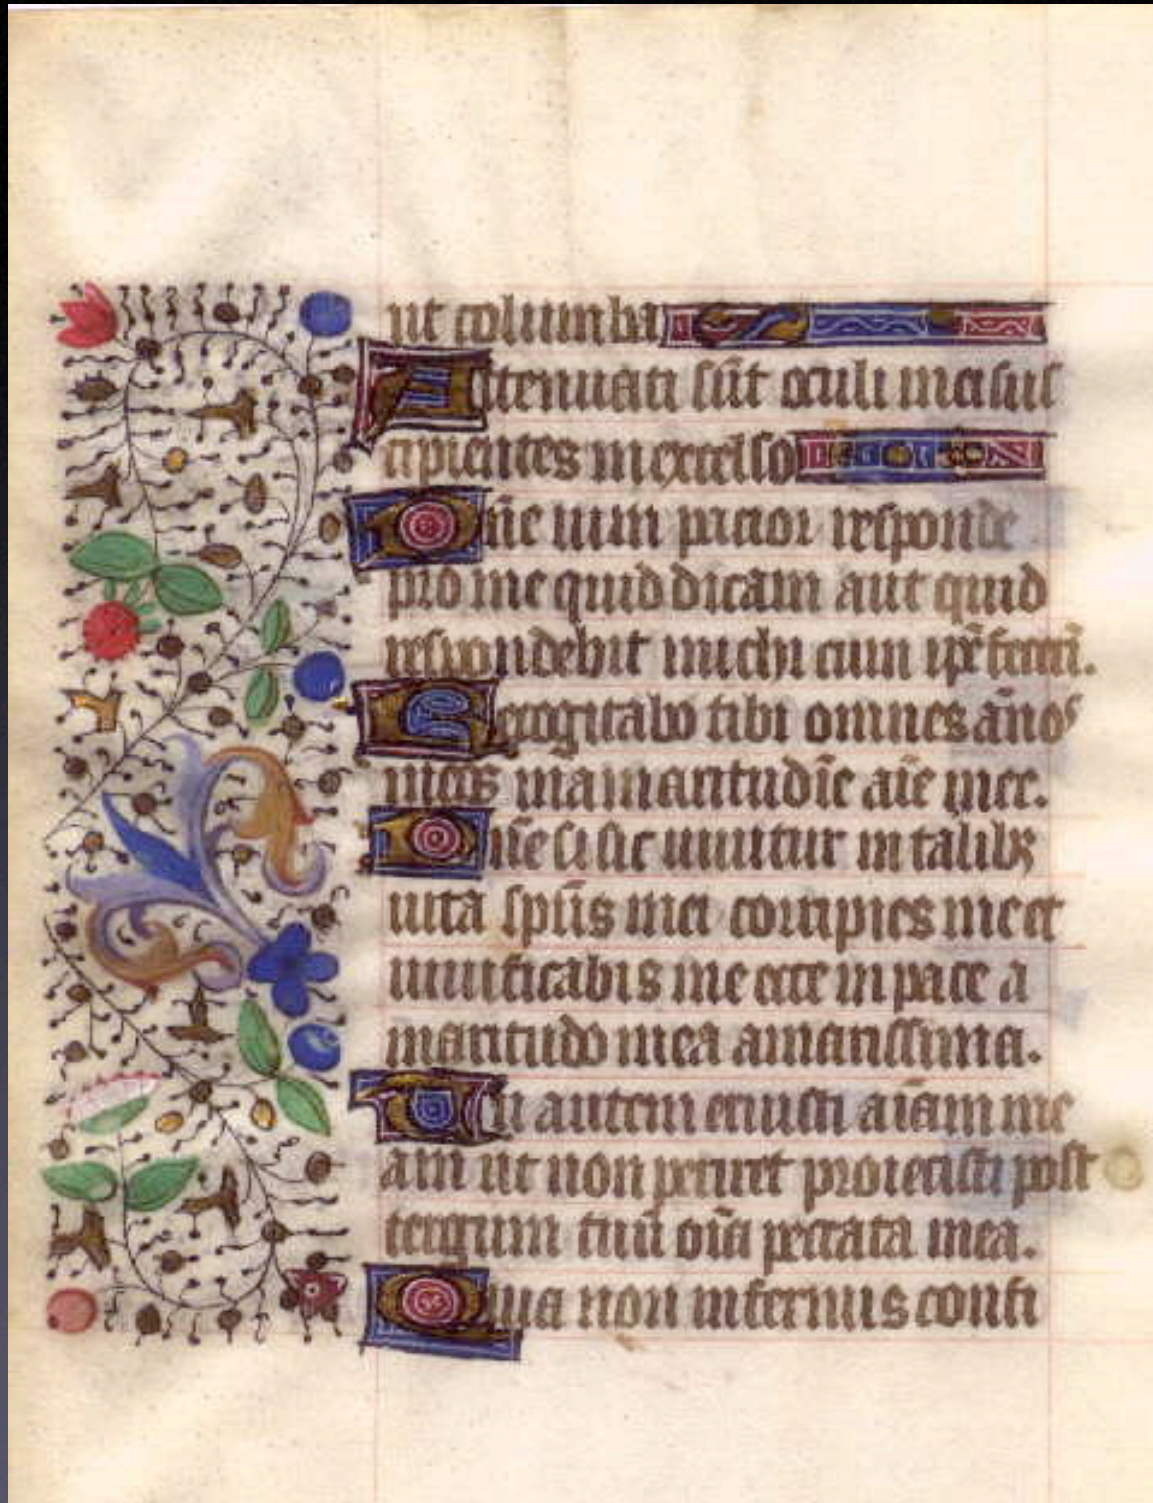 ut columba
Attenuati sūt oculi mei sus
cipientes in excelso
Dn̄e uim pacior responde
pro me quid dicam aut quid
respondebit michi cum ip̄e fecerī.
Recogitabo tibi omnes ānos
meos in amaritudīe aīe mee.
Dn̄e si sic uiuitur in talibꝫ
uita sp̄ūs mei corripies me et
uiuificabis me ecce in pace a
maritudo mea amarissima.
Tu autem eruisti aīam me
am ut non periret proiecisti post
tergum tuū oīa peccata mea.
Quia non infernus confi